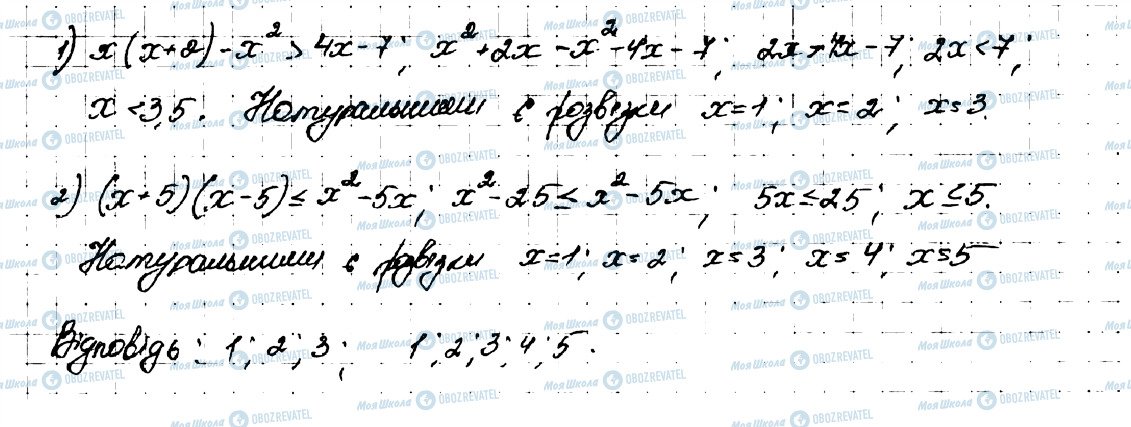 1) x(x+2)-x² > 4x-7; x²+2x-x²-4x-7; 2x>4x-7; 2x<7;
x<3,5. Натуральними є розв'язки x=1; x=2; x=3.
2) (x+5)(x-5)≤x²-5x; x²-25≤x²-5x; 5x≤25; x≤5.
Натуральними є розв'язки x=1; x=2; x=3; x=4; x=5
Відповідь: 1; 2; 3; 1; 2; 3; 4; 5.